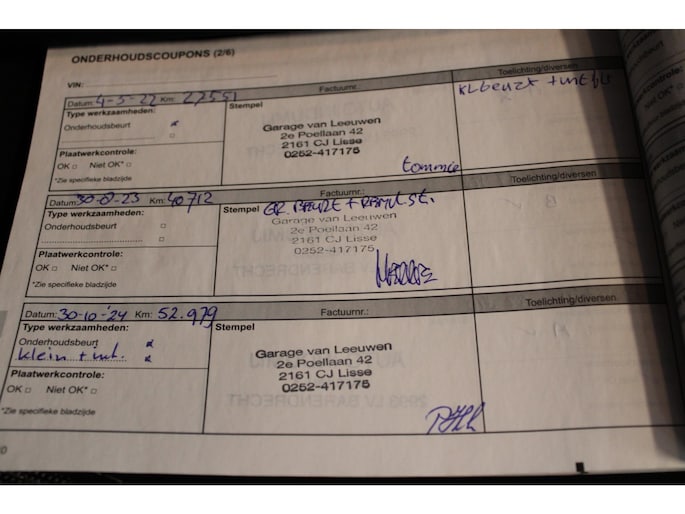 ONDERHOUDSCOUPONS (2/6)
VIN:
Datum: 4-5-22 Km: 27551
Factuurnr.:
Toelichting/diversen
Type werkzaamheden:
Onderhoudsbeurt
Stempel
Garage van Leeuwen
2e Poellaan 42
2161 CJ Lisse
0252-417175
Plaatwerkcontrole:
OK Niet OK*
*Zie specifieke bladzijde
Km: 40712
Factuurnr.:
Toelichting/diversen
Type werkzaamheden:
Onderhoudsbeurt
Stempel
Garage van Leeuwen
2e Poellaan 42
2161 CJ Lisse
0252-417175
Plaatwerkcontrole:
OK Niet OK*
*Zie specifieke bladzijde
Datum: 30-10-'24 Km: 52.979
Factuurnr.:
Toelichting/diversen
Type werkzaamheden:
Onderhoudsbeurt
klein + int.
Stempel
Garage van Leeuwen
2e Poellaan 42
2161 CJ Lisse
0252-417175
Plaatwerkcontrole:
OK Niet OK*
*Zie specifieke bladzijde